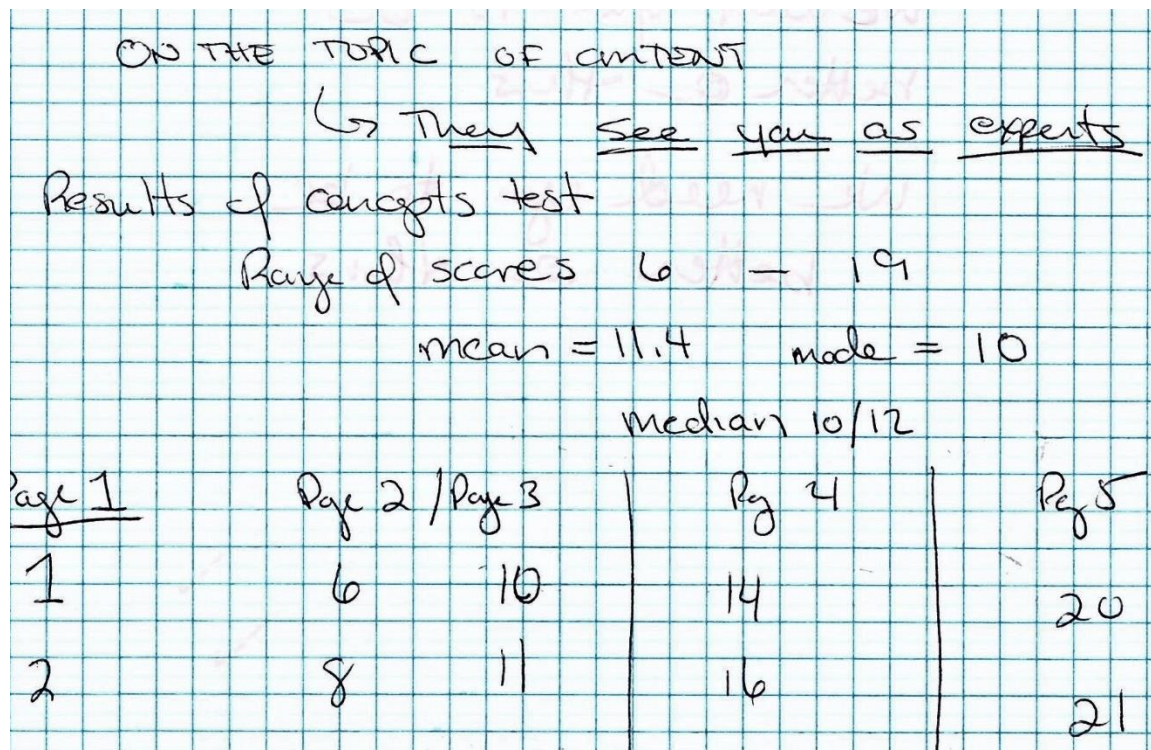 ON THE TOPIC OF CONTENT
↳ They see you as experts
Results of concepts test
Range of scores 6 - 19
mean = 11.4 mode = 10
median 10/12
Page 1 Page 2 / Page 3 Pg 4 Pg 5
1 6 10 14 20
2 8 11 16 21